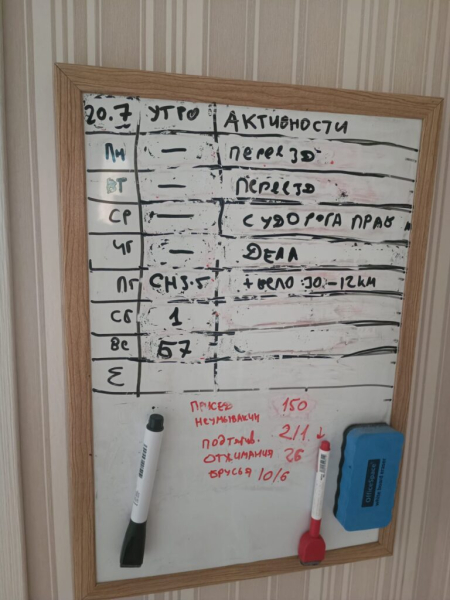 20.7 УТРО АКТИВНОСТИ
ПН — ПЕРЕЕЗД
ВТ — ПЕРЕЕЗД
СР — СУДОРОГА ПРАВ
ЧТ — ДЕЛА
ПТ СН3.5 + ВЕЛО 30 - 12КМ
СБ 1
ВС Б7
Σ
ПРИСЕД 150
НЕУМЫВАКИ
ПОДТЯГ. 2/1 ↓
ОТЖИМАНИЯ 26
БРУСЬЯ 10/6